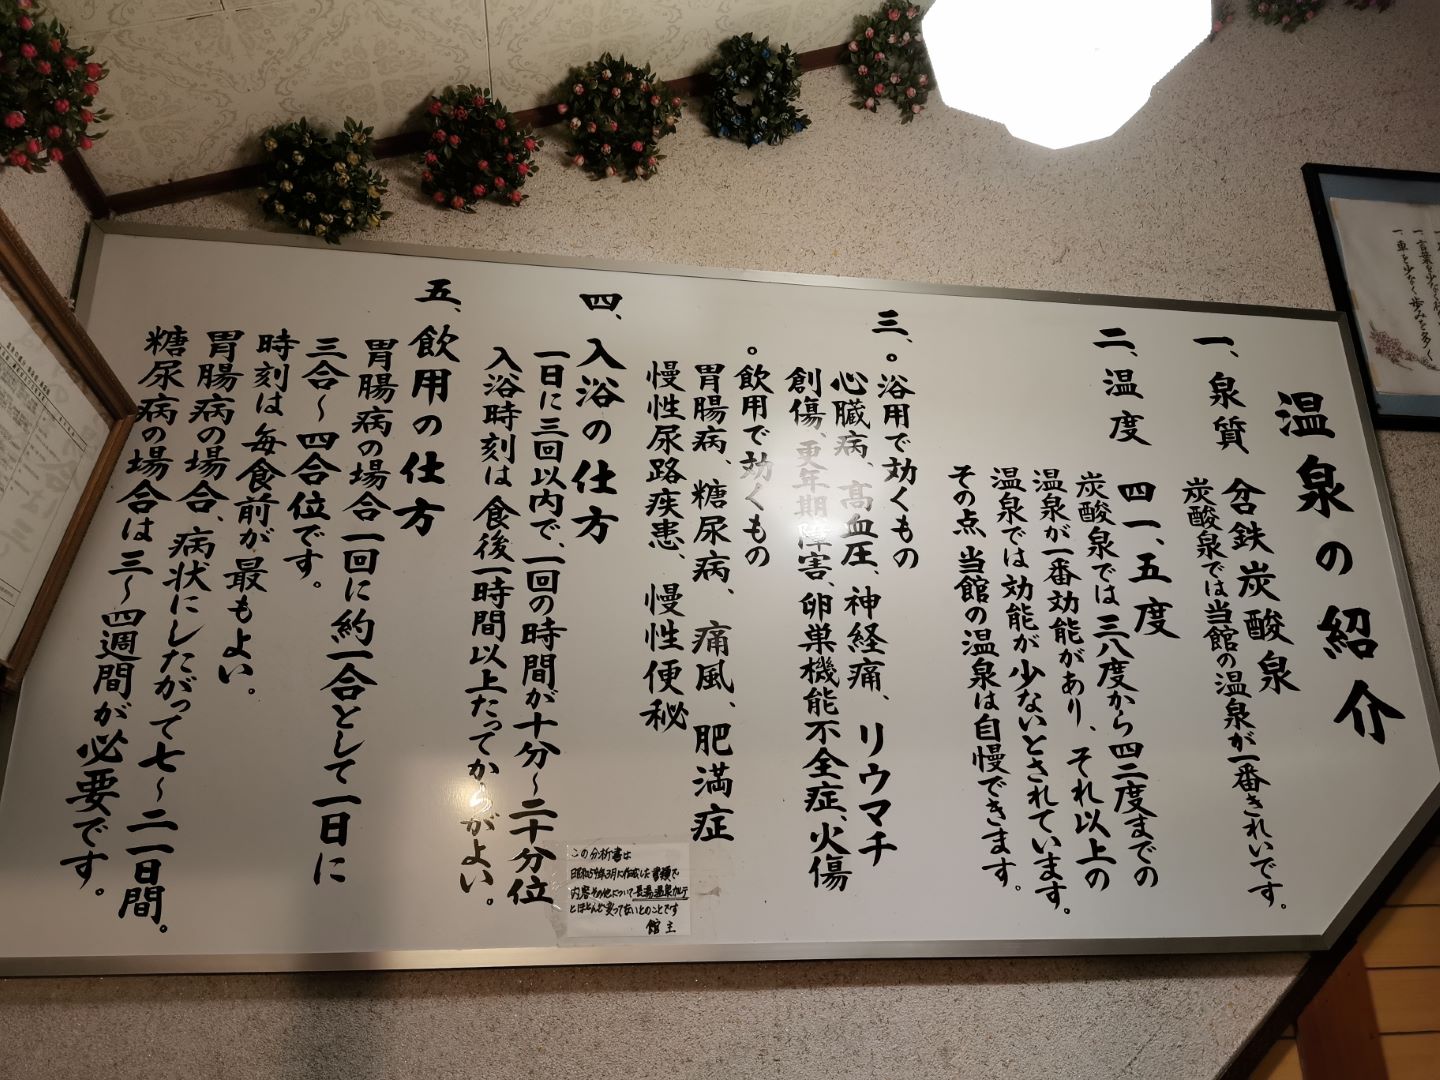 温泉の紹介
一、泉質
含鉄炭酸泉
炭酸泉では当館の温泉が一番きれいです。
二、温度
四一、五度
炭酸泉では三八度から四二度までの
温泉が一番効能があり、それ以上の
温泉では効能が少ないとされています。
その点 当館の温泉は自慢できます。
三、。浴用で効くもの
心臓病、高血圧、神経痛、リウマチ
創傷、更年期障害、卵巣機能不全症、火傷
。飲用で効くもの
胃腸病、糖尿病、痛風、肥満症
慢性尿路疾患、慢性便秘
四、入浴の仕方
一日に三回以内で、一回の時間が十分〜二十分位
入浴時刻は食後一時間以上たってからがよい。
五、飲用の仕方
胃腸病の場合一回に約一合として一日に
三合〜四合位です。
時刻は毎食前が最もよい。
胃腸病の場合、病状にしたがって七〜二一日間。
糖尿病の場合は三〜四週間が必要です。
この分析書は
昭和54年3月に作成した書類で
内容その他について長湯温泉カルテ
とほとんど変ってないとのことです
館主
一、言葉を少なく
一、車を少なく歩みを多く、